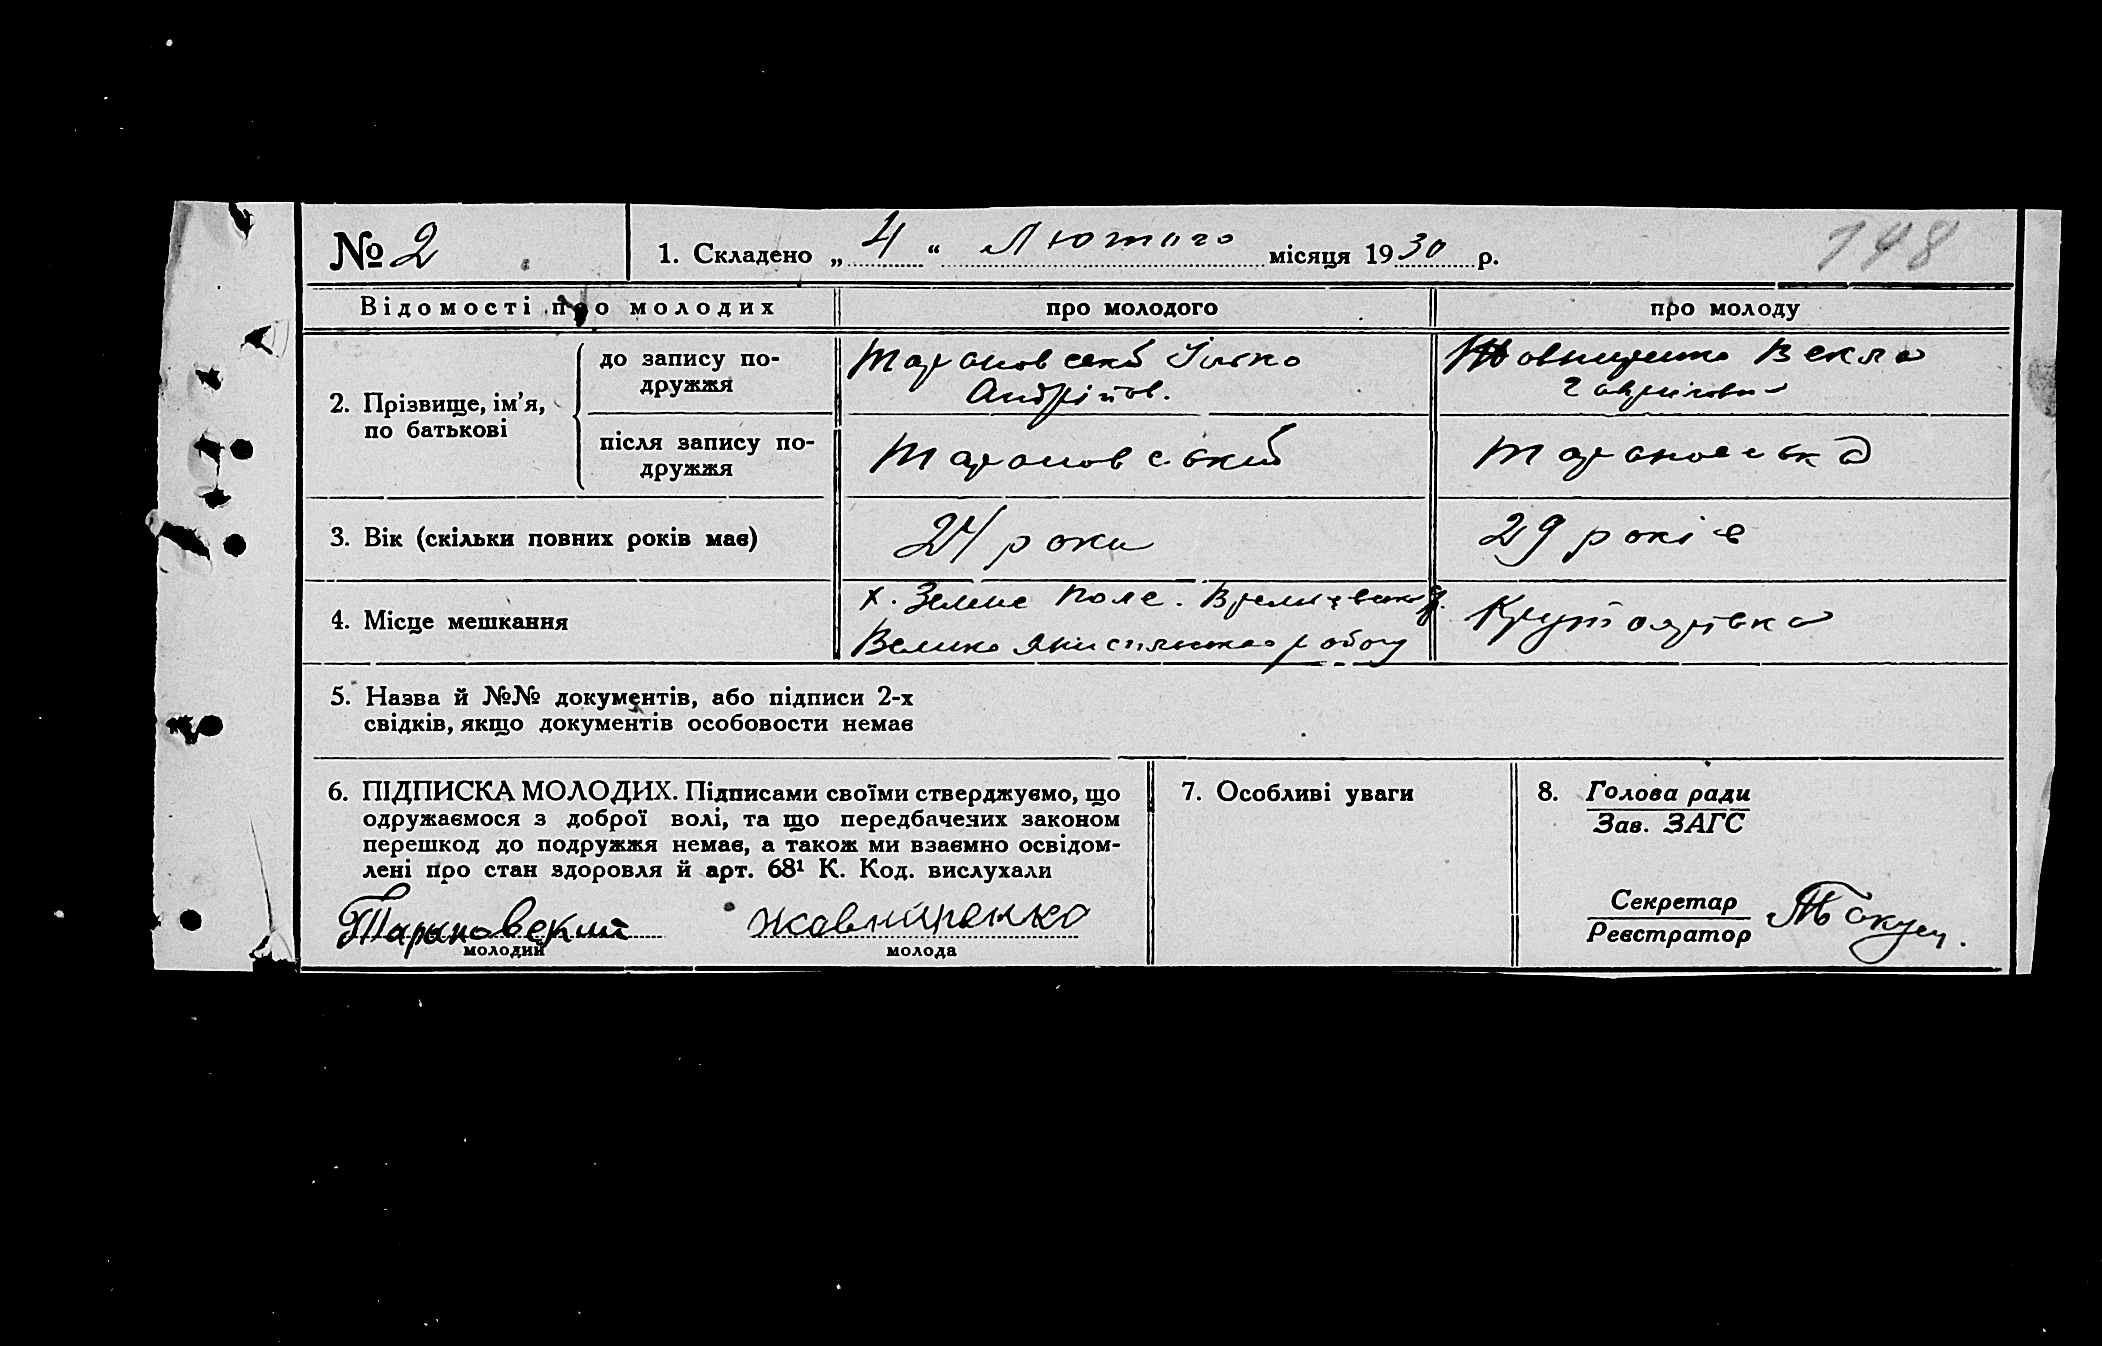 № 2
1. Складено „ 4 “ Лютого місяця 1930 р.
148
Відомості про молодих
про молодого
про молоду
2. Прізвище, ім’я, по батькові
до запису по-
дружжя
Тарановськ Ілько
Андріїов.
Жовниренко Векла
Гаврилови
після запису по-
дружжя
Тарановський
Тарановська
3. Вік (скільки повних років має)
24 роки
29 років
4. Місце мешкання
х. Зелене Поле.
Велико
Крутоярівка
5. Назва й №№ документів, або підписи 2-х
свідків, якщо документів особовости немає
6. ПІДПИСКА МОЛОДИХ. Підписами своїми стверджуємо, що
одружаємося з доброї волі, та що передбачених законом
перешкод до подружжя немає, а також ми взаємно освідом-
лені про стан здоровля й арт. 68¹ К. Код. вислухали
Тарановский
молодий
жовниренко
молода
7. Особливі уваги
8. Голова ради
Зав. ЗАГС
Секретар
Реєстратор